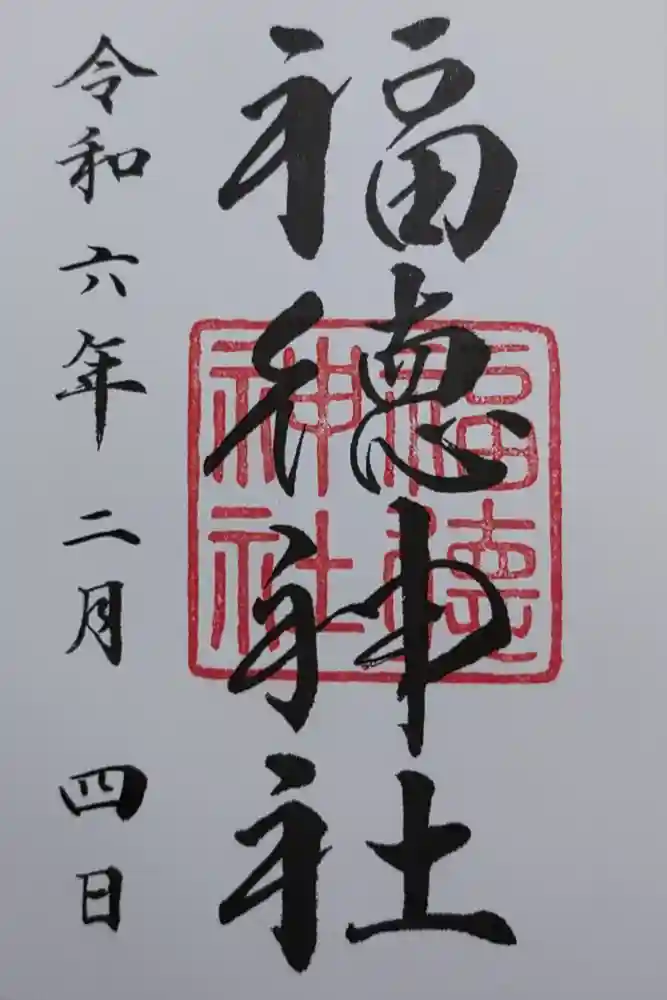 福徳神社
福徳
神社
令和六年二月四日